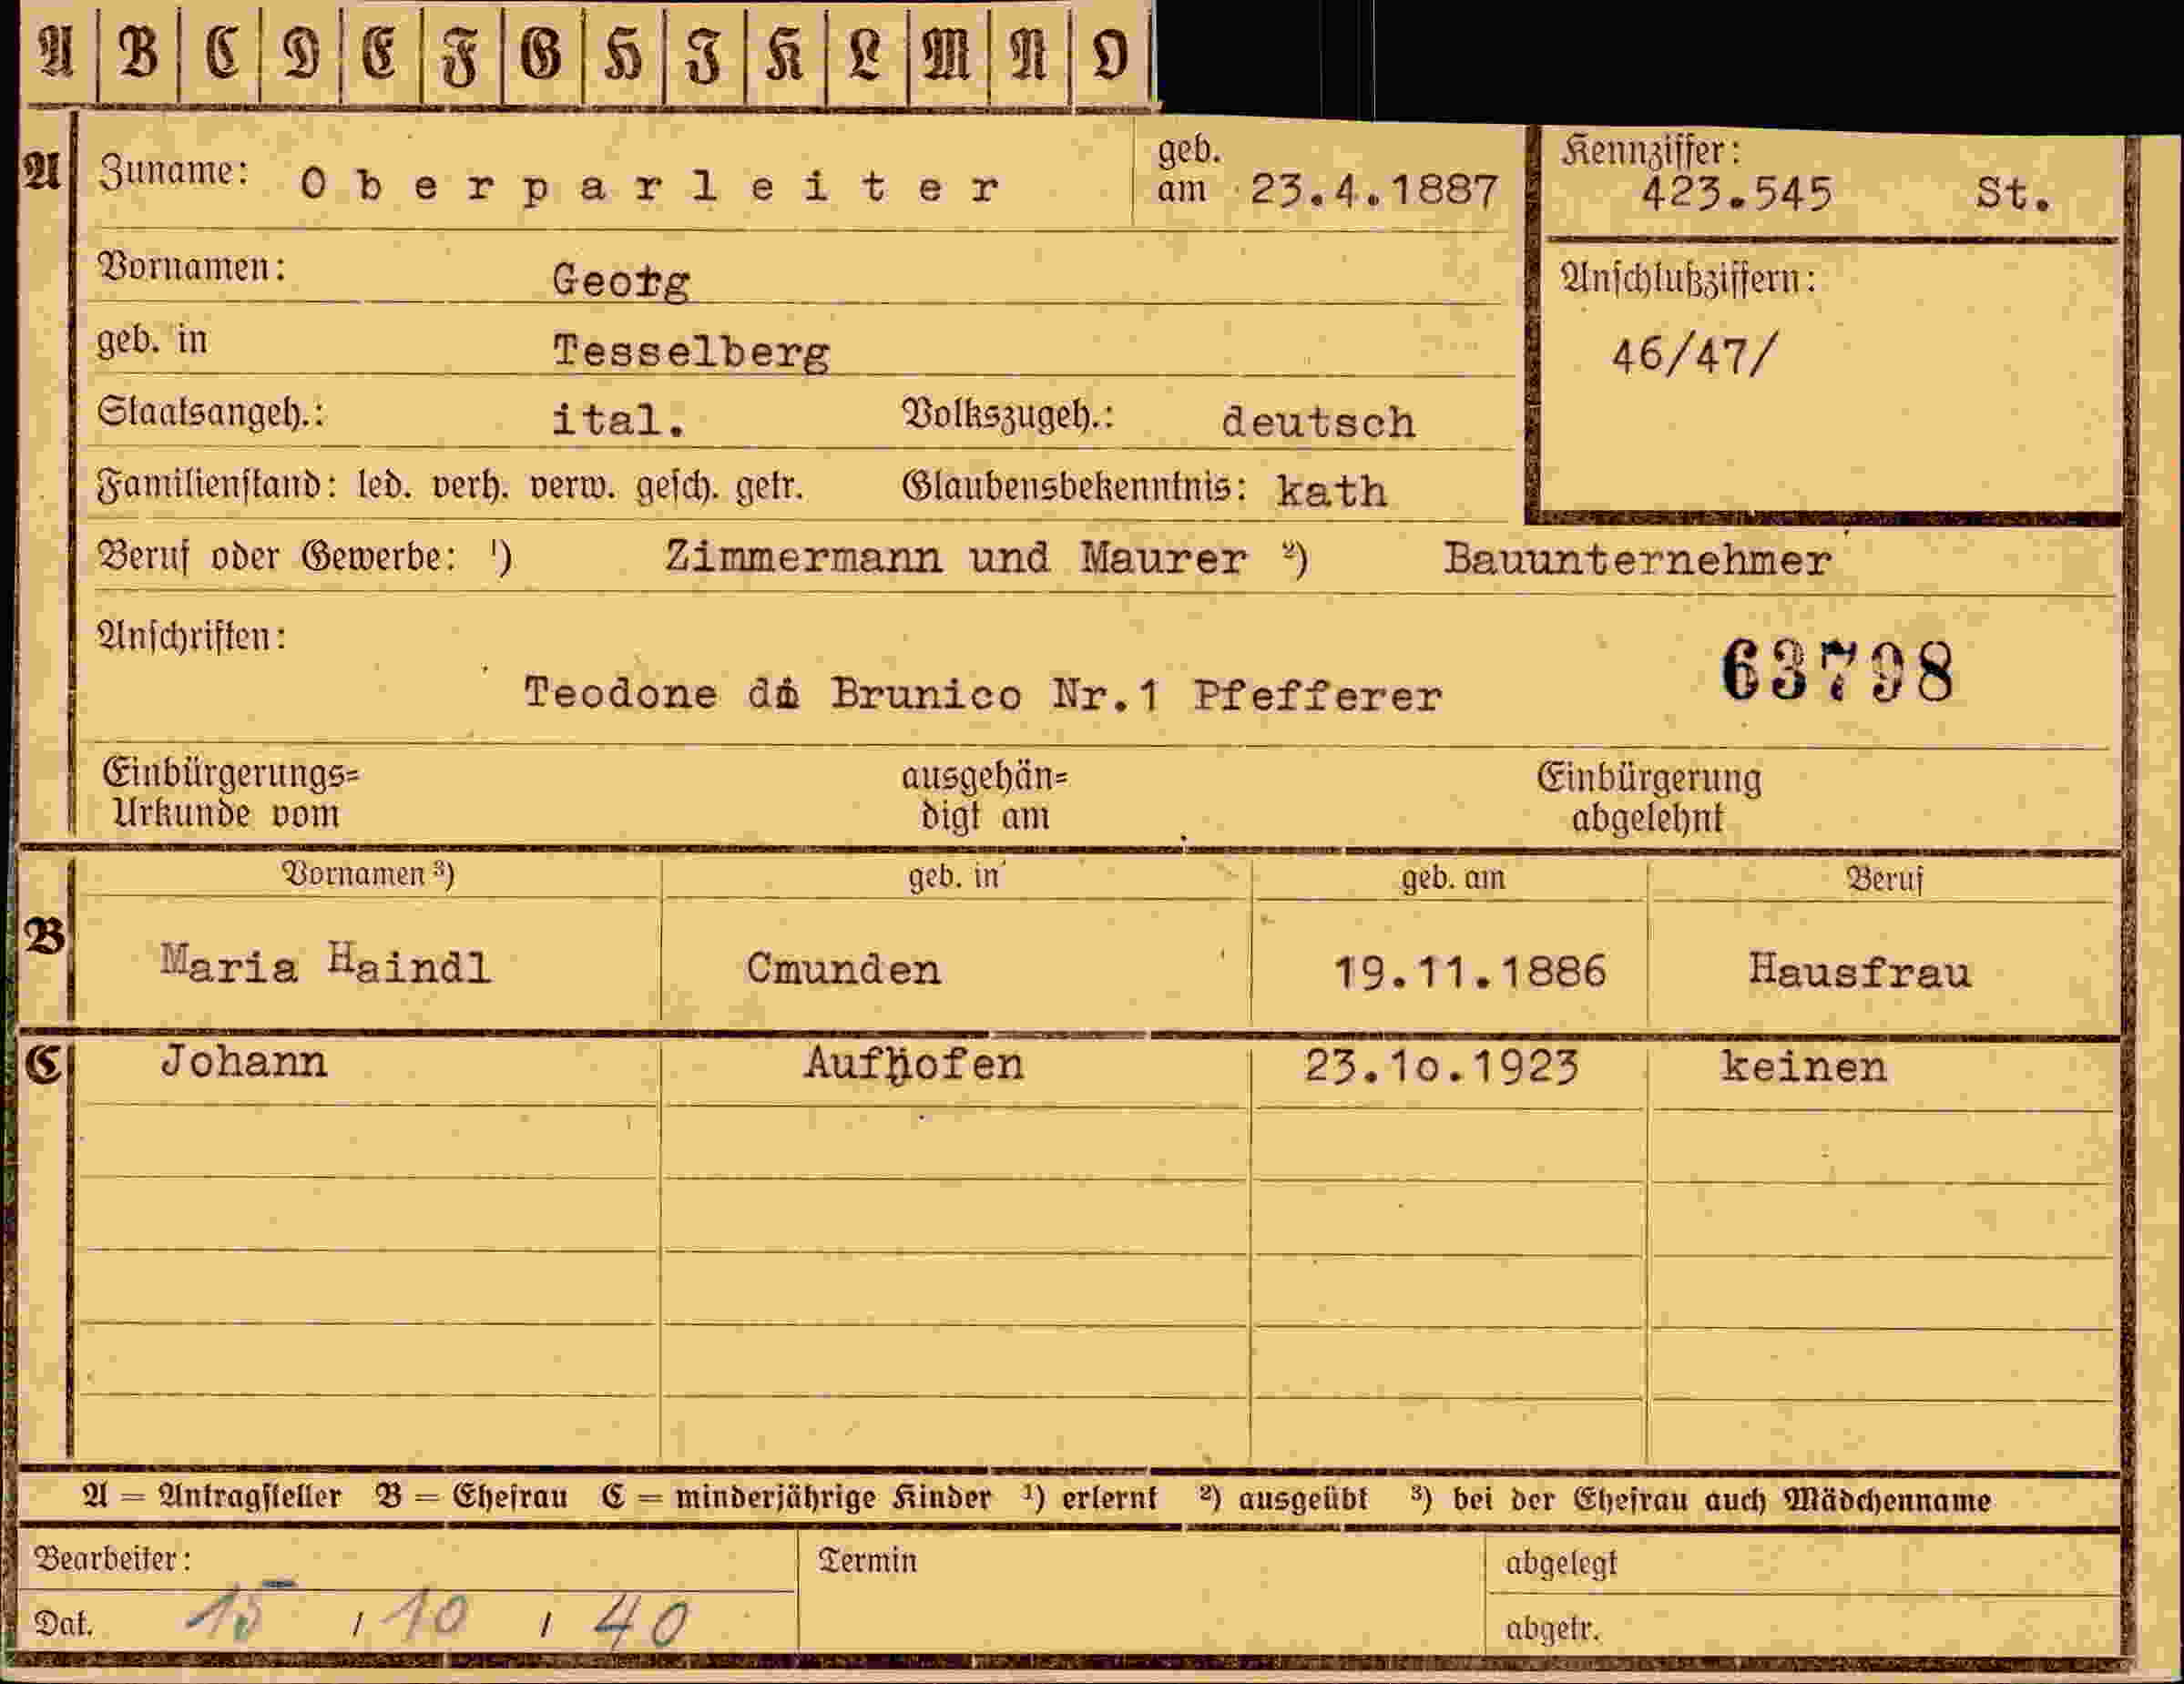 A B C D E F G H I K L M N O
A Zuname: Oberparleiter geb. am 23.4.1887 Kennziffer: 423.545 St.
Vornamen: Georg Anschlußziffern:
geb. in Tesselberg 46/47/
Staatsangeh.: ital. Volkszugeh.: deutsch
Familienstand: led. verh. verw. gesch. getr. Glaubensbekenntnis: kath
Beruf oder Gewerbe: ¹) Zimmermann und Maurer ²) Bauunternehmer
Anschriften:
Teodone di Brunico Nr.1 Pfefferer 63798
Einbürgerungs= ausgehän= Einbürgerung
Urkunde vom digt am abgelehnt
Vornamen ³) geb. in geb. am Beruf
B Maria Haindl Cmunden 19.11.1886 Hausfrau
C Johann Aufhofen 23.1o.1923 keinen
A = Antragsteller B = Ehefrau C = minderjährige Kinder ¹) erlernt ²) ausgeübt ³) bei der Ehefrau auch Mädchenname
Bearbeiter: Termin abgelegt
Dat. 15 / 10 / 40 abgetr.